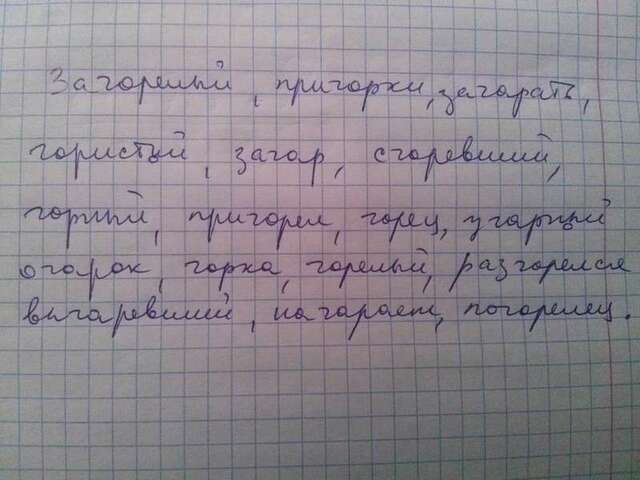 Загорелый, пригорки, загарать,
гористый, загар, сгоревший,
горный, пригорел, горец, угарный
огарок, горка, горелый, разгорелся
выгоревший, нагарает, погорелец.